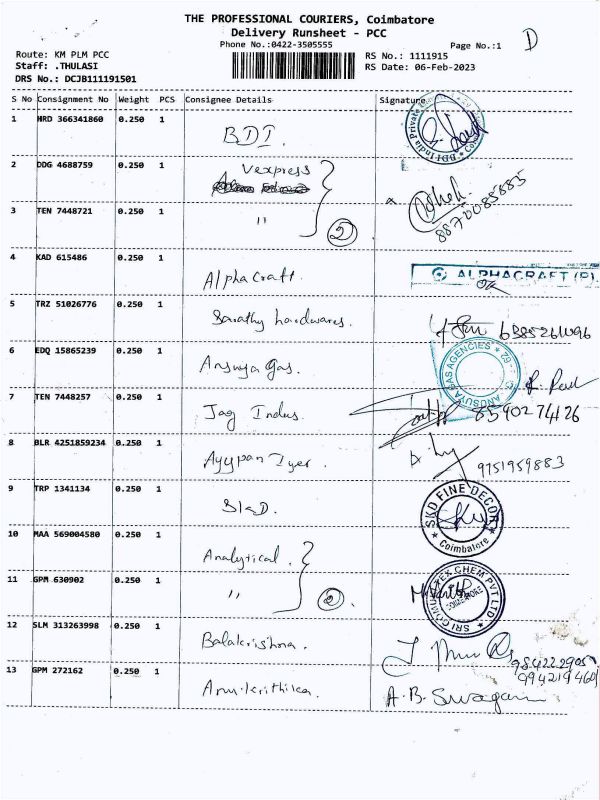 THE PROFESSIONAL COURIERS, Coimbatore
Delivery Runsheet - PCC
Phone No.:0422-3505555
Page No.:1
D
Route: KM PLM PCC
Staff: .THULASI
DRS No.: DCJB111191501
RS No.: 1111915
RS Date: 06-Feb-2023
S No Consignment No Weight PCS Consignee Details Signature
1 HRD 366341860 0.250 1 BDI.
BDI India Private
2 DDG 4688759 0.250 1 Vexpress
3 TEN 7448721 0.250 1 " 2
Ashok.
8870085885
4 KAD 615486 0.250 1 Alpha Craft.
ALPHACRAFT (P).
5 TRZ 51026776 0.250 1 Sarathy hardwares.
6385261096
6 EDQ 15865239 0.250 1 Ansuya Gas.
ANUSUYA GAS AGENCIES
7 TEN 7448257 0.250 1 Jag Indus.
8590274126
8 BLR 4251859234 0.250 1 Ayypan Iyer.
9751959883
9 TRP 1341134 0.250 1
SKD FINE DECOR
Coimbatore
10 MAA 569004580 0.250 1 Analytical.
11 GPM 630902 0.250 1 " 2
CHEM PVT LTD
12 SLM 313263998 0.250 1 Balakrishna.
13 GPM 272162 0.250 1 Arul krithika.
A.B. Sivagami